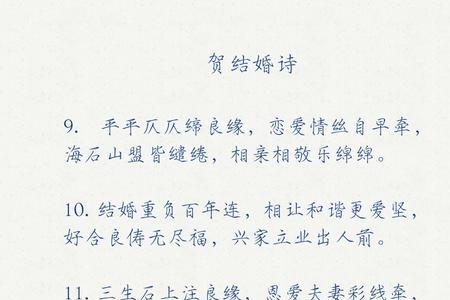 贺结婚诗
9. 平平仄仄缔良缘，恋爱情丝自早牵，
海石山盟皆缱绻，相亲相敬乐绵绵。
10. 结婚重负百年连，相让和谐更爱坚，
好合良俦无尽福，兴家立业出人前。
11. 三生石上注良缘，恩爱夫妻彩线牵，